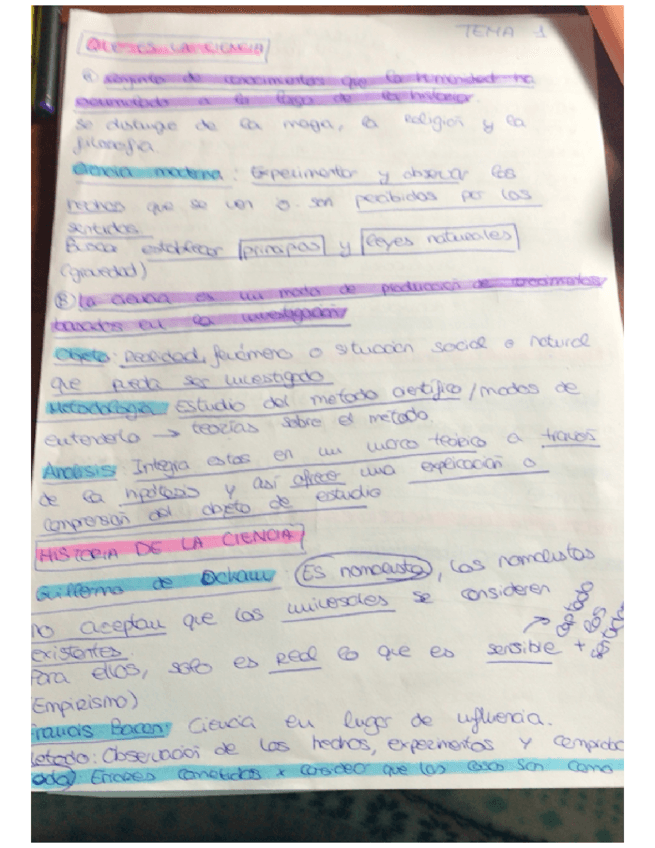 TEMA 1
QUE ES LA CIENCIA
Ⓐ conjunto de conocimientos que la humanidad ha
acumulado a lo largo de la historia
se distingue de la magia, la religión y la
filosofía
Ciencia moderna: Experimentar y observar los
hechos que se ven o son percibidos por los
sentidos.
Busca establecer principios y leyes naturales
(gravedad)
Ⓑ La ciencia es un modo de producción de conocimientos
basados en la investigación
Objeto: Realidad, fenómeno o situación social o natural
que pueda ser investigado
Metodología: Estudio del metodo científico / modos de
entenderlo → teorías sobre el metodo.
Análisis: Integra estos en un marco teórico a través
de la hipótesis y así ofrece una explicación o
comprensión del objeto de estudio
HISTORIA DE LA CIENCIA
Guillermo de Ockam: Es nominalista, los nominalistas
no aceptan que los universales se consideren
existentes.
Para ellos, solo es Real lo que es sensible +
(Empirismo)
Francis Bacon: Ciencia en lugar de influencia.
Metodo: Observación de los hechos, experimentos y comproba
Errores cometidos x creer que las cosas son como